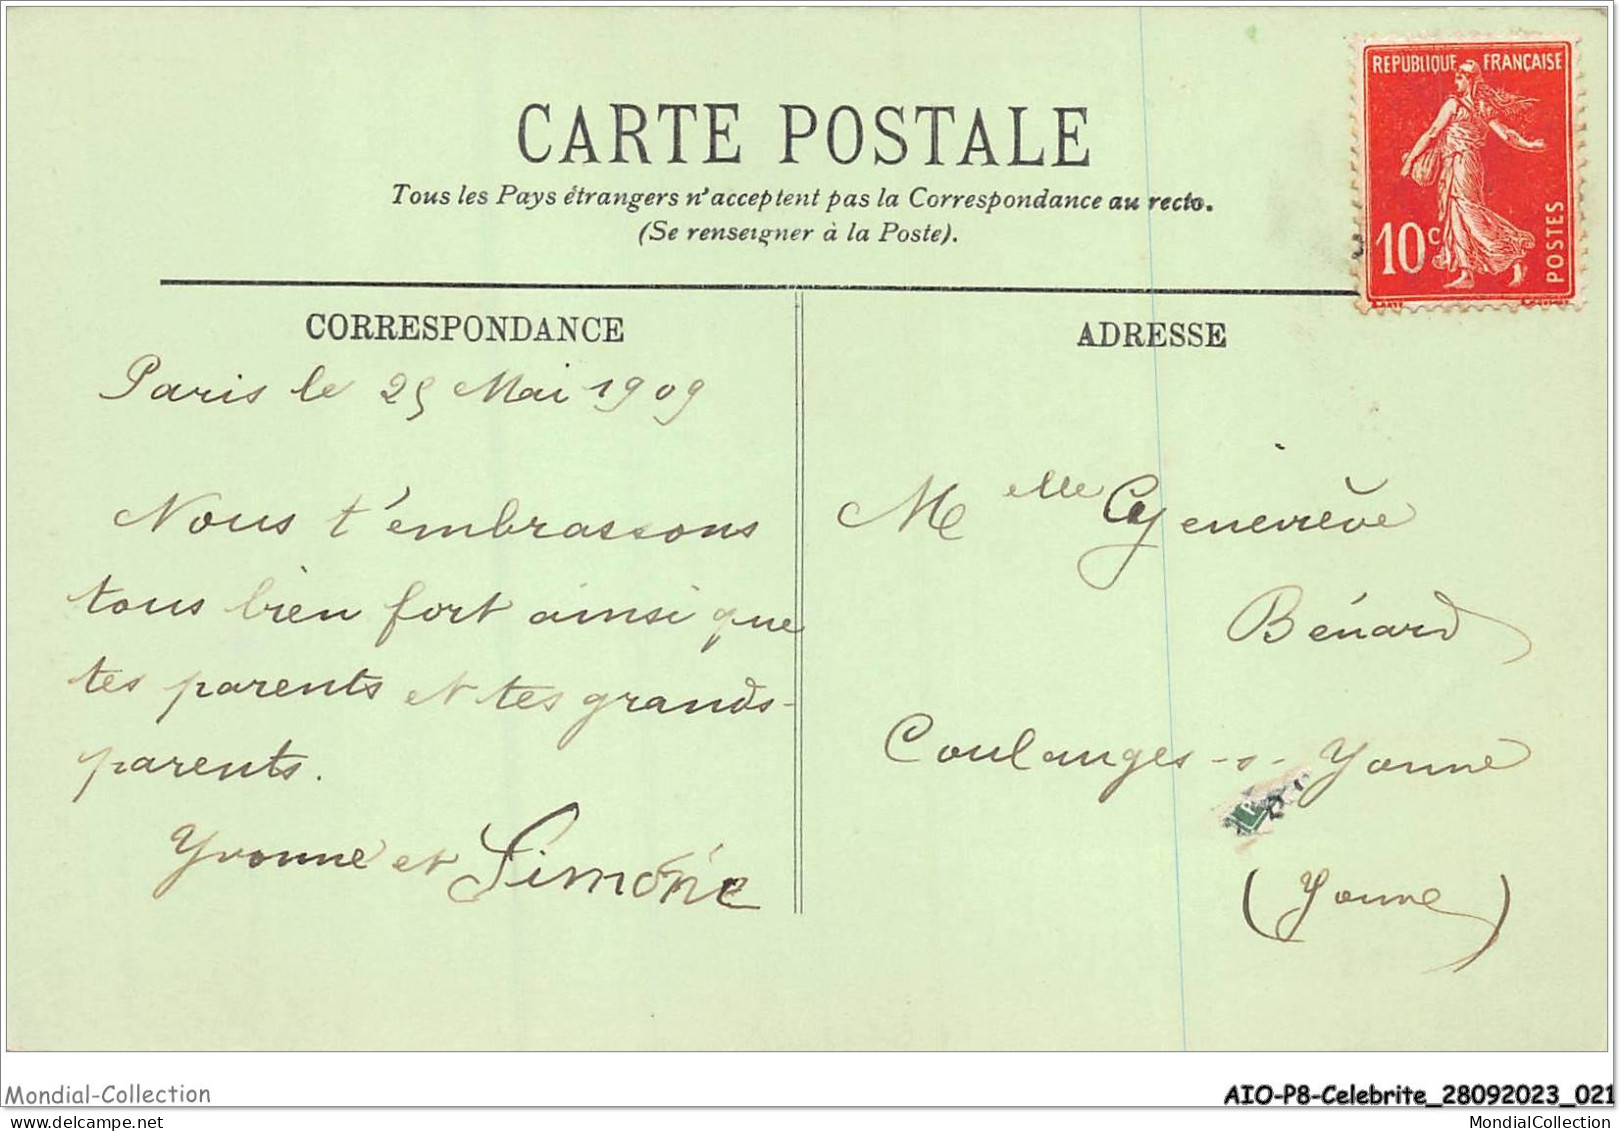 REPUBLIQUE FRANÇAISE
10c
POSTES
CARTE POSTALE
Tous les Pays étrangers n'acceptent pas la Correspondance au recto.
(Se renseigner à la Poste).
CORRESPONDANCE
Paris le 25 Mai 1909
Nous t'embrassons
tous bien fort ainsi que
tes parents et tes grands-
parents.
Yvonne et Simone
ADRESSE
Melle Geneviève
Bénard
Coulanges-s-Yonne
(Yonne)
Mondial-Collection
AIO-P8-Celebrite_28092023_021
MondialCollection